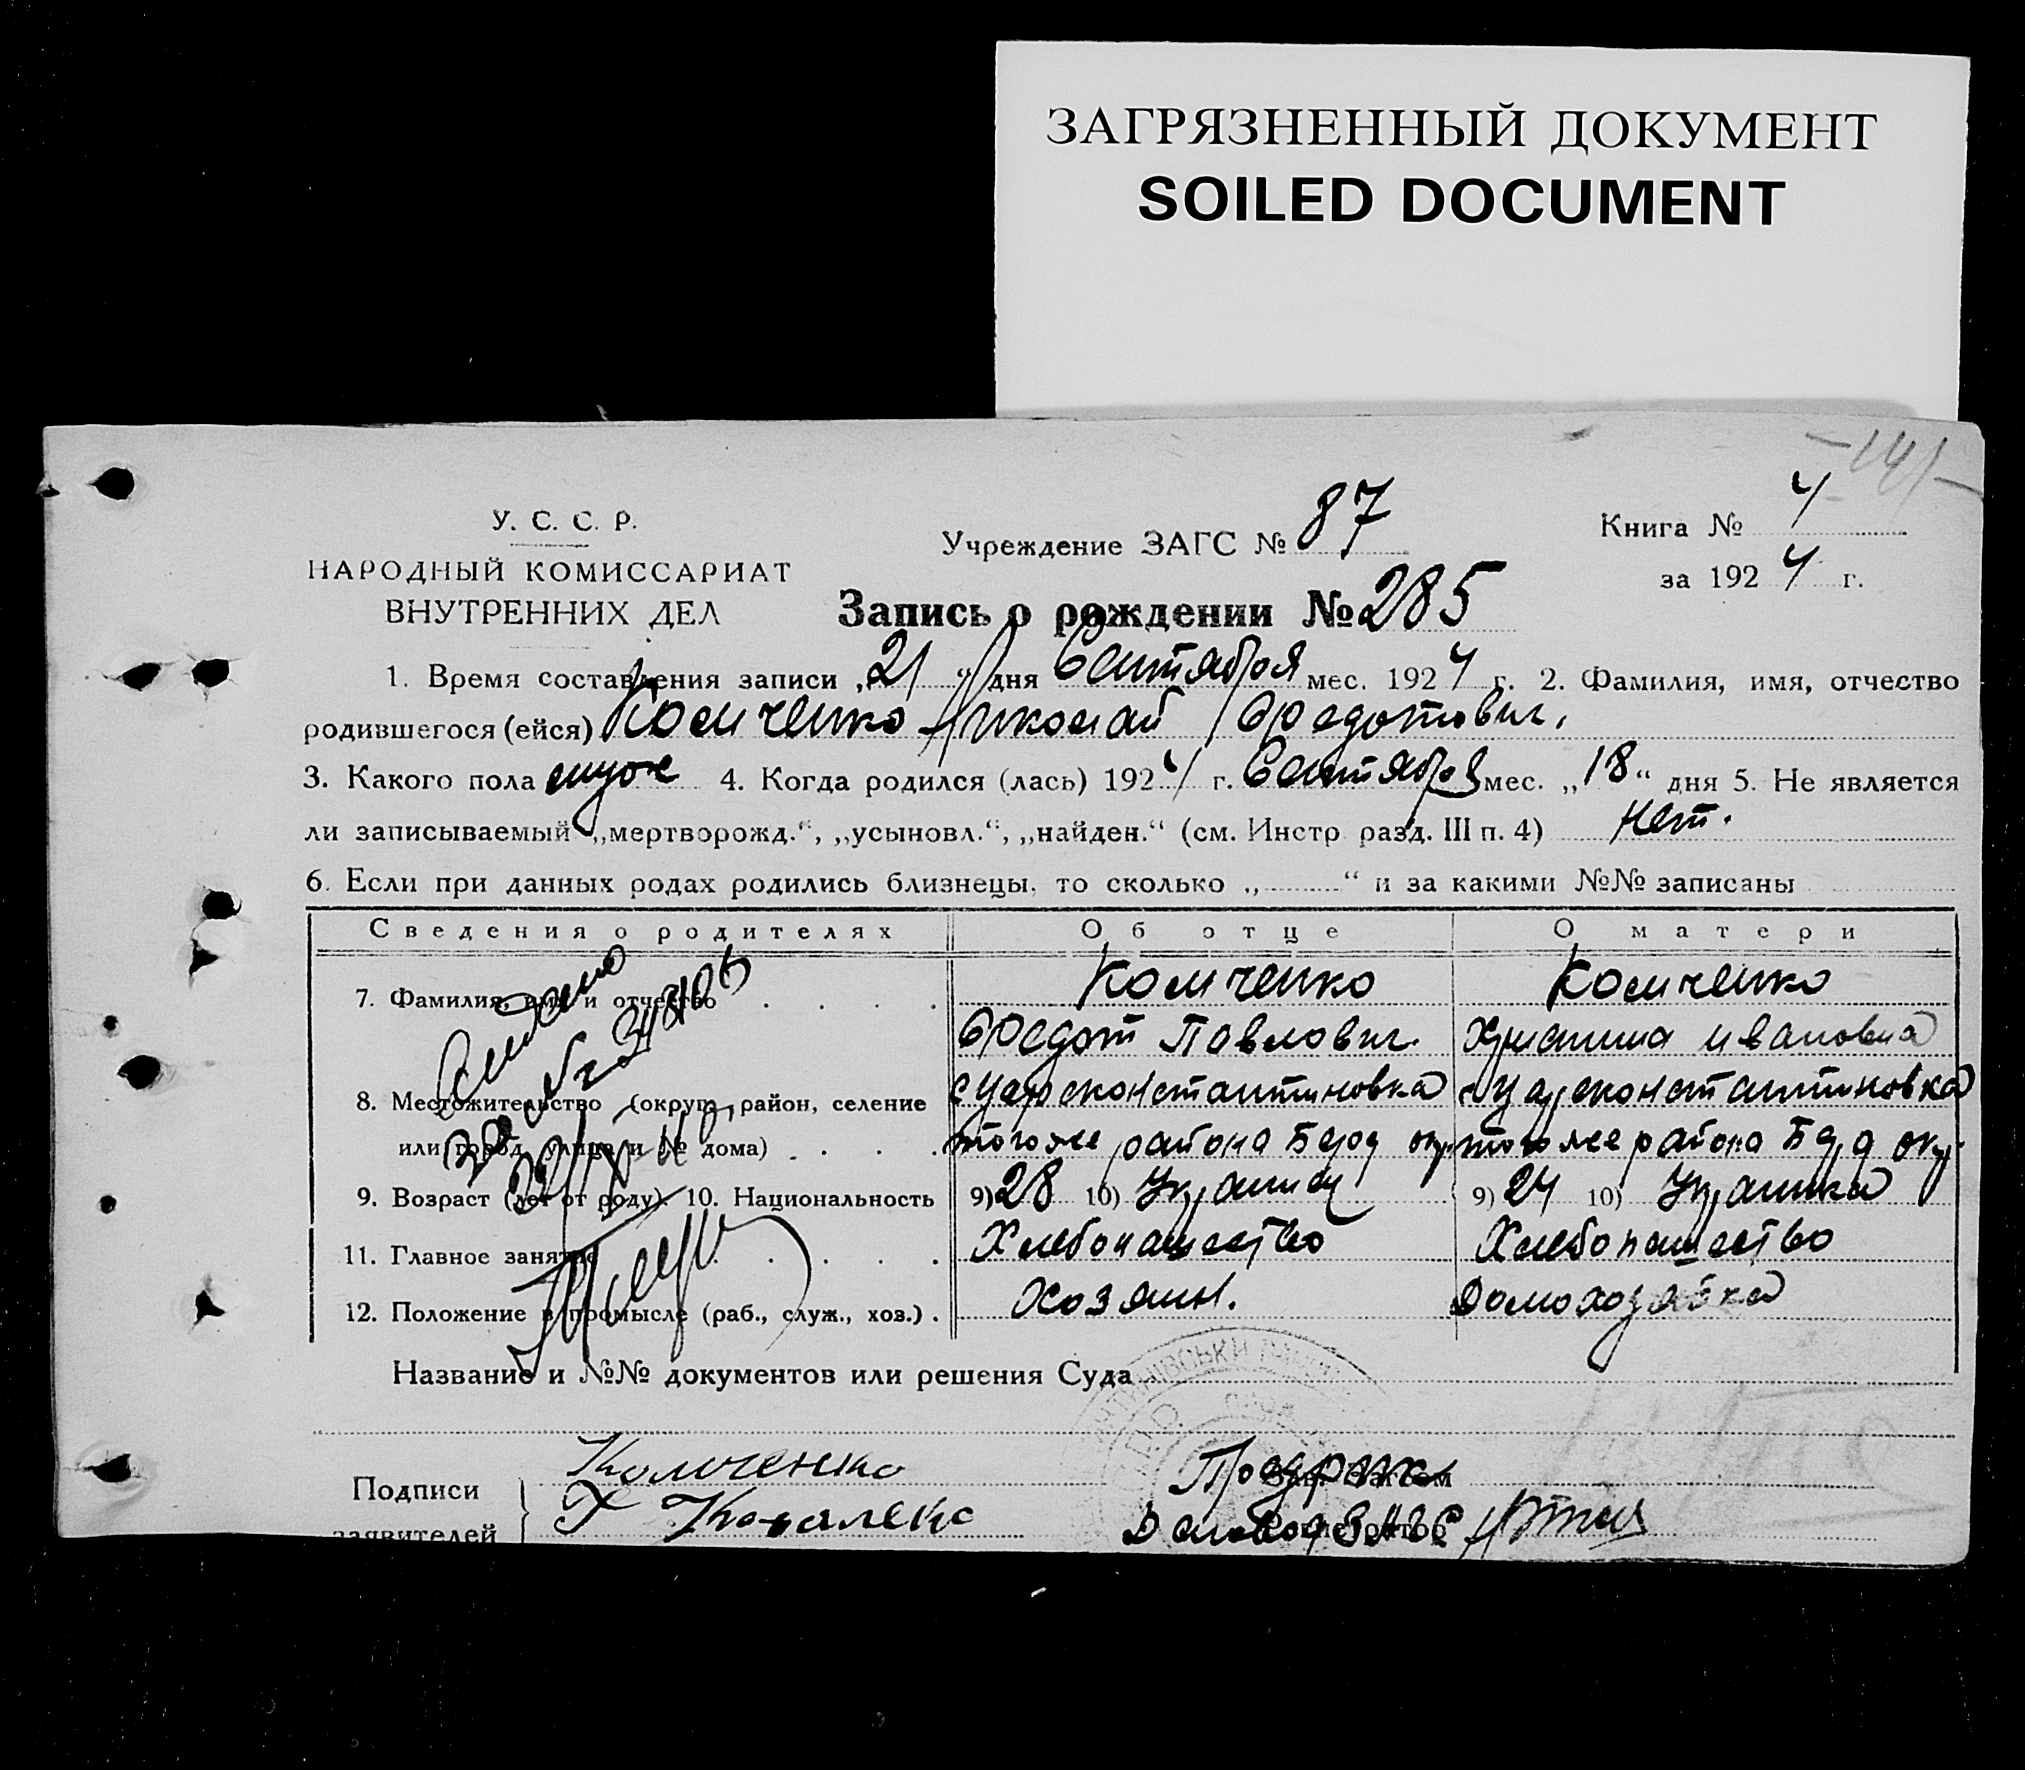 ЗАГРЯЗНЕННЫЙ ДОКУМЕНТ
SOILED DOCUMENT
-141-
У. С. С. Р.
НАРОДНЫЙ КОМИССАРИАТ
ВНУТРЕННИХ ДЕЛ
Учреждение ЗАГС № 87
Книга № 4
за 1924 г.
Запись о рождении № 285
1. Время составления записи „21“ дня Сентября мес. 1924 г. 2. Фамилия, имя, отчество
родившегося (ейся) Комченко Николай Федотович.
3. Какого пола муж 4. Когда родился (лась) 1924 г. Сентября мес. „18“ дня 5. Не является
ли записываемый „мертворожд.“, „усыновл.“, „найден.“ (см. Инстр разд. III п. 4) Нет.
6. Если при данных родах родились близнецы, то сколько „ “ и за какими №№ записаны
Сведения о родителях Об отце О матери
7. Фамилия, имя и отчество Комченко Комченко
Федот Павлович. Христина Ивановна
8. Местожительство (округ, район, селение с Цареконстантиновка с Цареконстантиновка
или город, улица и № дома) того же района Берд окр того же района Берд окр
9. Возраст (лет от роду) 10. Национальность 9) 28 10) Украинец 9) 24 10) Украинка
11. Главное занятие Хлебопашество Хлебопашество
12. Положение в промысле (раб., служ., хоз.) Хозяин. Домохозяйка
Название и №№ документов или решения Суда
Подписи
заявителей
Комченко